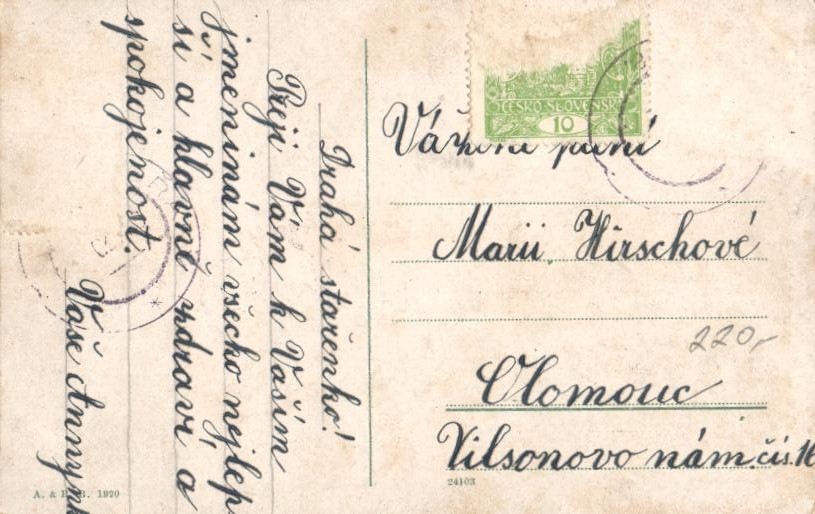 Drahá stařenko!
Přeji Vám k Vaším
jmeninám všecko nejlep-
ší a hlavně zdraví a
spokojenost.
Vaše
ČESKO-SLOVENSKÁ
10
Vážená paní
Marii Hirschové
220,-
Olomouc
Vilsonovo nám. čís. 16
24103
A. & 1920